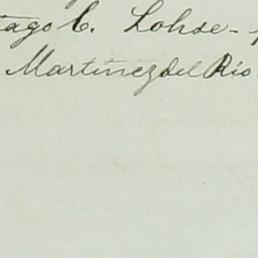 tago C. Lohse -
Martinez del Rio